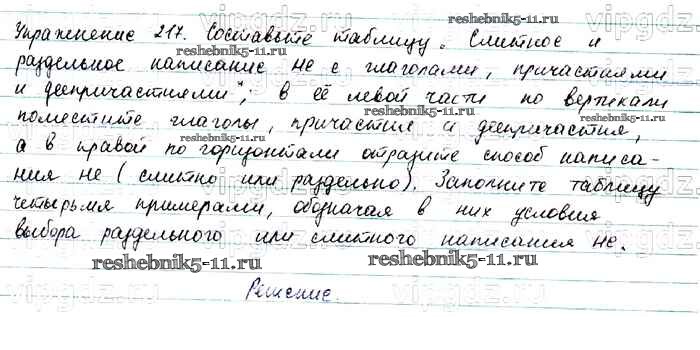 Упражнение 217. Составьте таблицу „Слитное и
раздельное написание не с глаголами, причастиями
и деепричастиями", в её левой части по вертикали
поместите глаголы, причастия и деепричастия,
а в правой по горизонтали отразите способ написа-
ния не (слитно или раздельно). Заполните таблицу
четырьмя примерами, обозначая в них условия
выбора раздельного или слитного написания не.
Решение.
reshebnik5-11.ru
reshebnik5-11.ru
reshebnik5-11.ru
reshebnik5-11.ru
reshebnik5-11.ru
reshebnik5-11.ru
vipgdz
vipgdz
vipgdz